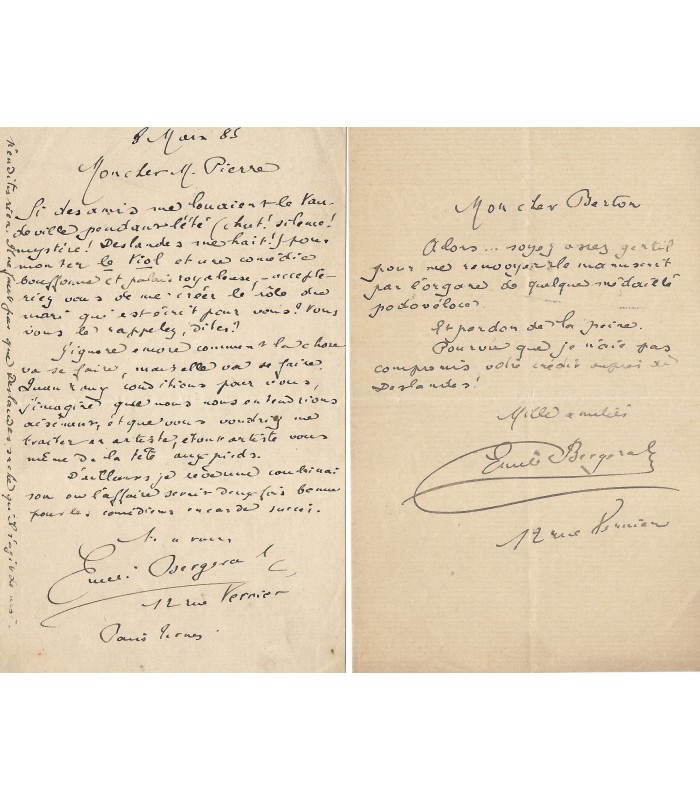 8 Mars 85
Mon cher M. Pierre
Si des amis me louaient le Vau-
deville pendant l'été (chut! silence!
mystère! Deslandes me hait!) pour
monter le Viol et une comédie
bouffonne et palais royaleuse - accepte-
riez vous de me créer le rôle du
mari qui est écrit pour vous? Vous
vous le rappelez, dites?
J'ignore encore comment la chose
va se faire, mais elle va se faire.
Quant aux conditions pour vous,
j'imagine que nous nous entendrions
aisément, et que vous voudriez me
traiter en artiste, étant artiste vous
même de la tête aux pieds.
D'ailleurs je rêve une combinai
son où l'affaire serait deux fois bonne
pour les comédiens en cas de succès.
à vous
Emile Bergerat
12 rue Vernier
Paris Ternes
N'en dites rien. Il ne faut pas que Deslandes sache qu'il s'agit de moi.
Mon cher Berton
Alors... soyez assez gentil
pour me renvoyer le manuscrit
par l'organe de quelque médaillé
podovéloce.
Et pardon de la peine.
Pourvu que je n'aie pas
compromis votre crédit auprès de
Deslandes!
Mille amitiés
Emile Bergerat
12 rue Vernier